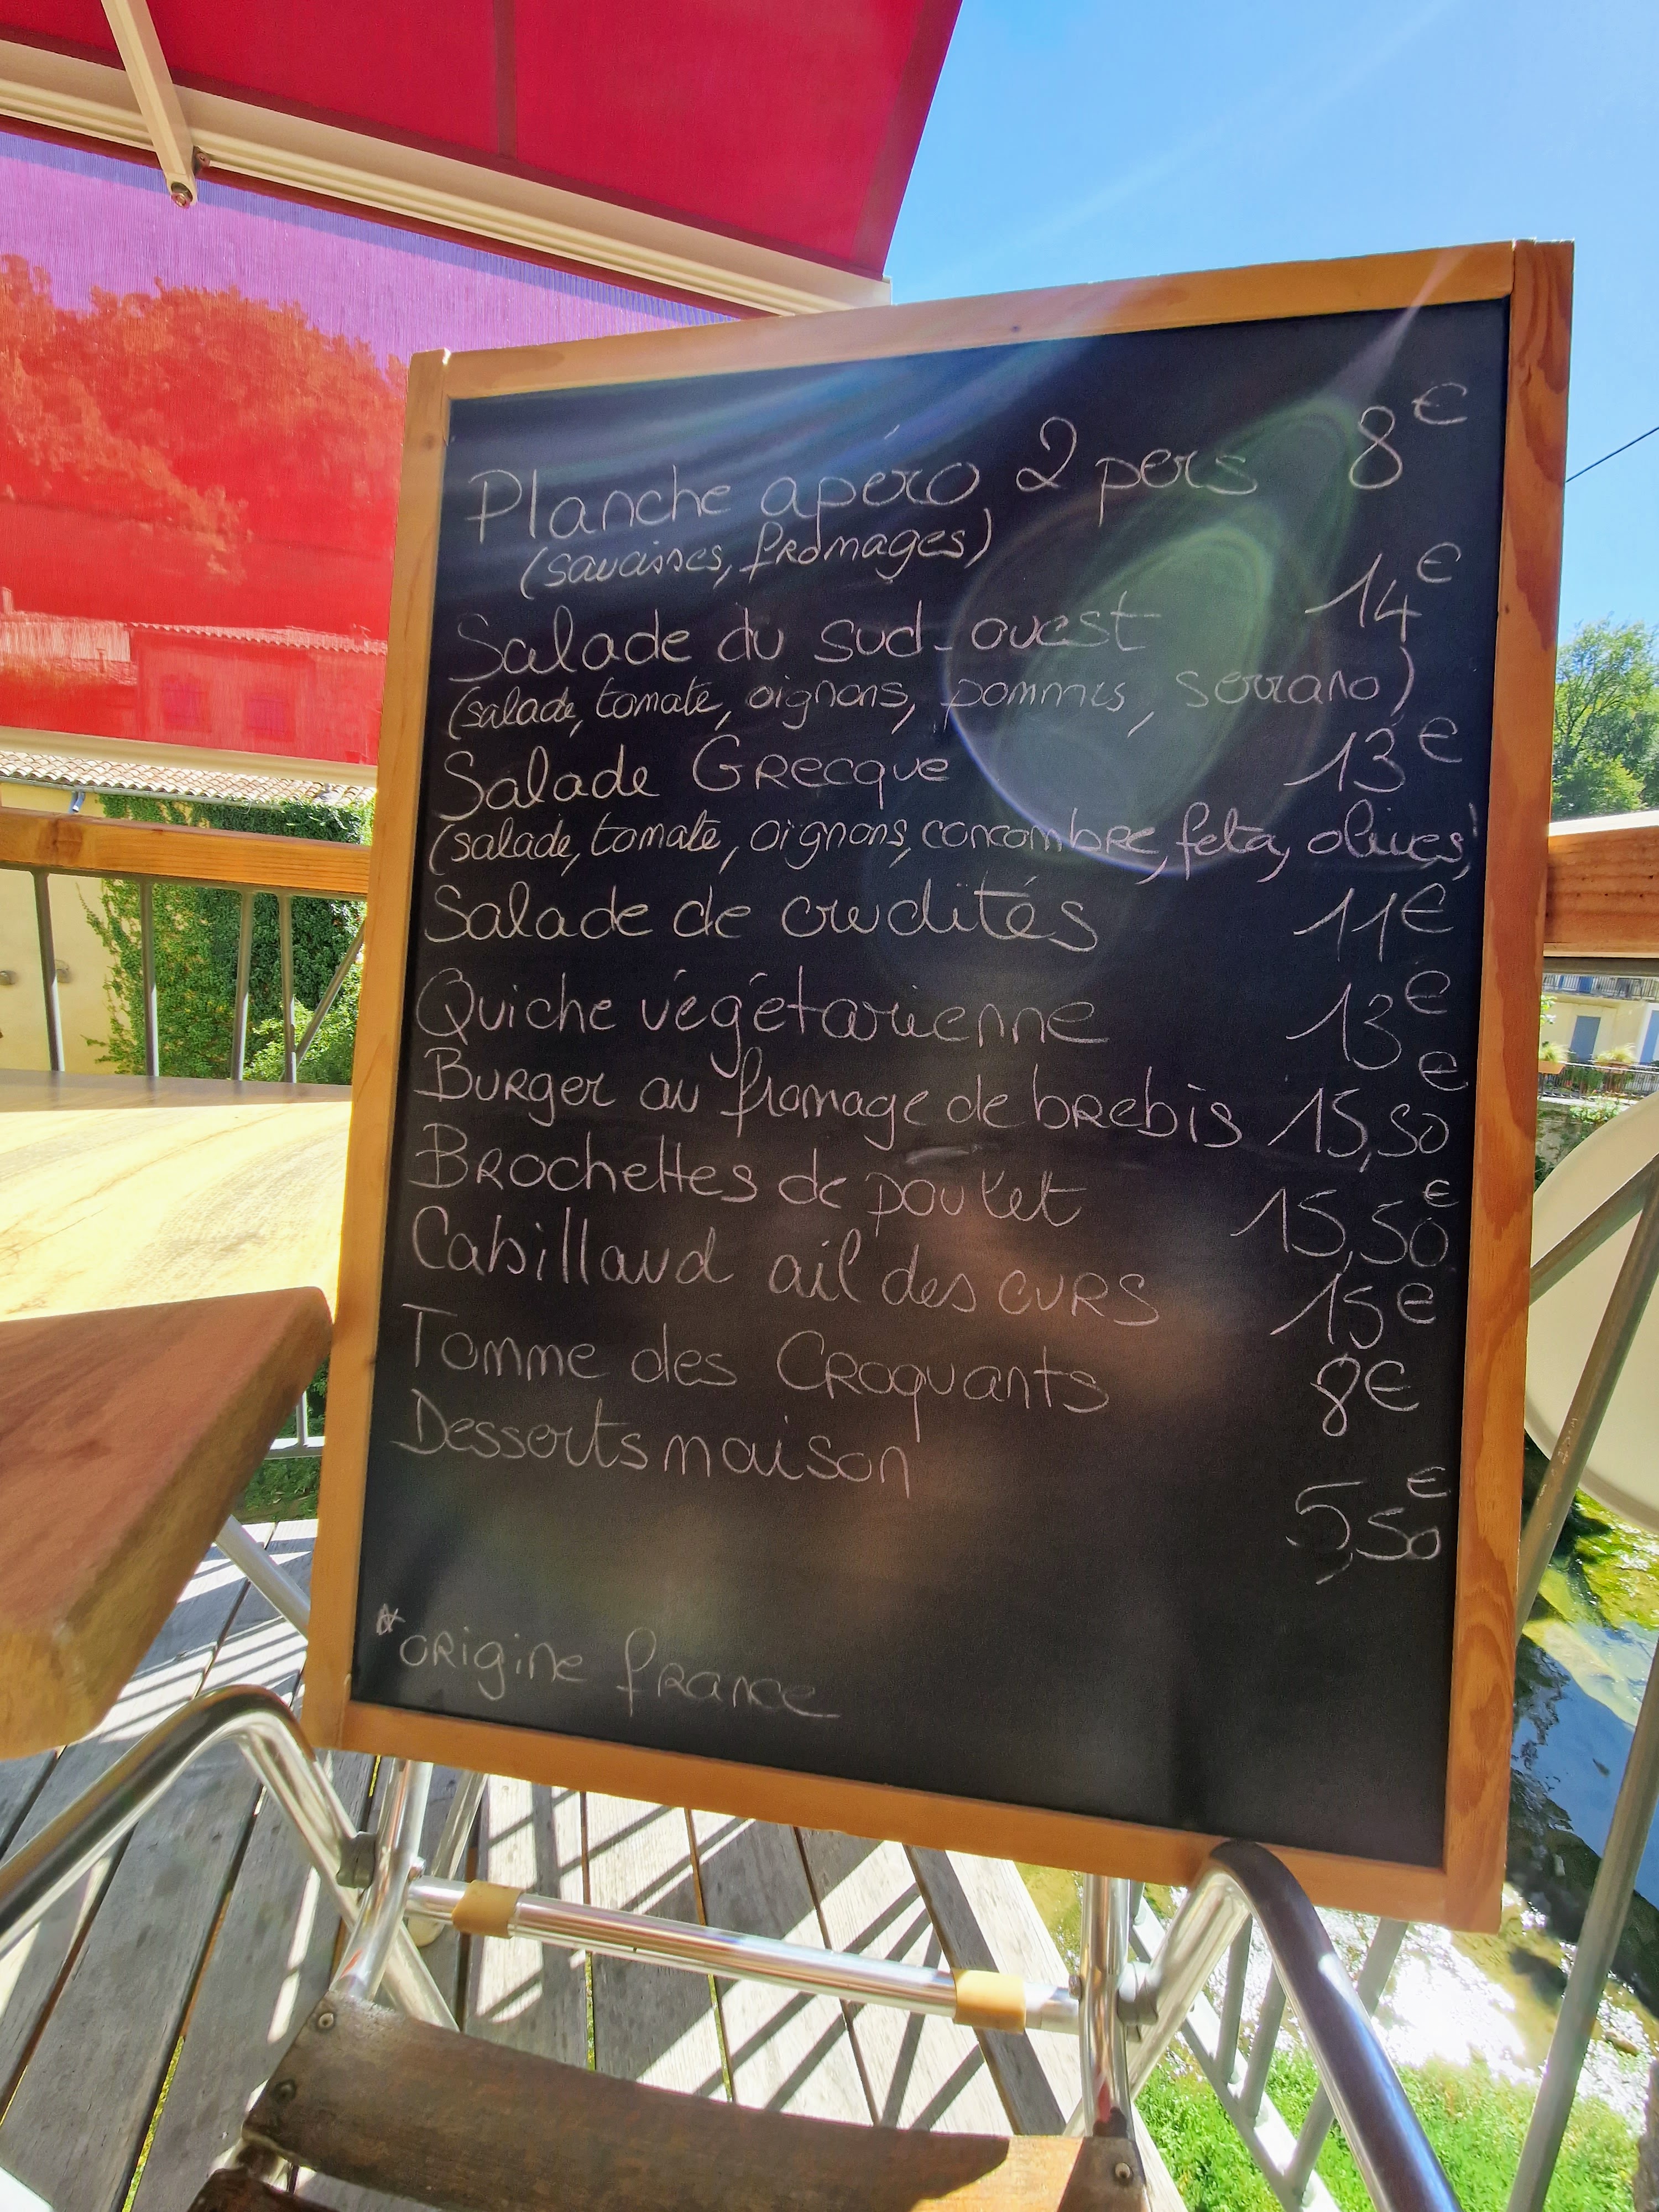 Planche apéro 2 pers 8€
(saucisses, fromages)
Salade du sud-ouest 14€
(salade, tomate, oignons, pommes, serrano)
Salade Grecque 13€
(salade, tomate, oignons, concombre, feta, olives)
Salade de crudités 11€
Quiche végétarienne 13€
Burger au fromage de brebis 15,50€
Brochettes de poulet 15,50€
Cabillaud ail des ours 15€
Tomme des Croquants 8€
Desserts maison 5,50€
*origine france